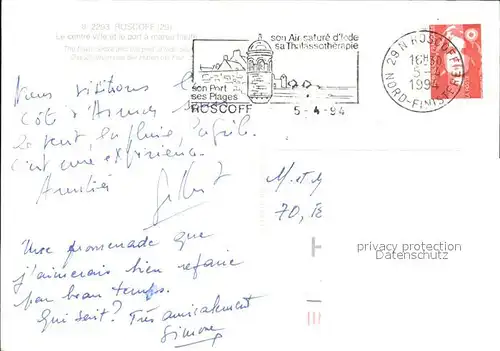 2293 ROSCOFF (29)
Le centre ville et le port à marée haute
son Air saturé d'Iode
sa Thalassothérapie
son Port
ses Plages
ROSCOFF
5-4-94
29 N ROSCOFF
16H30
5-4
1994
NORD-FINISTERE
Nous visitons
Côte d'Armor
le vent, la pluie,
c'est une expérience.
Amitiés
M. et
70,
Une promenade que
j'aimerais bien refaire
par beau temps.
Qui sait? Très amicalement
Simone
privacy protection
Datenschutz